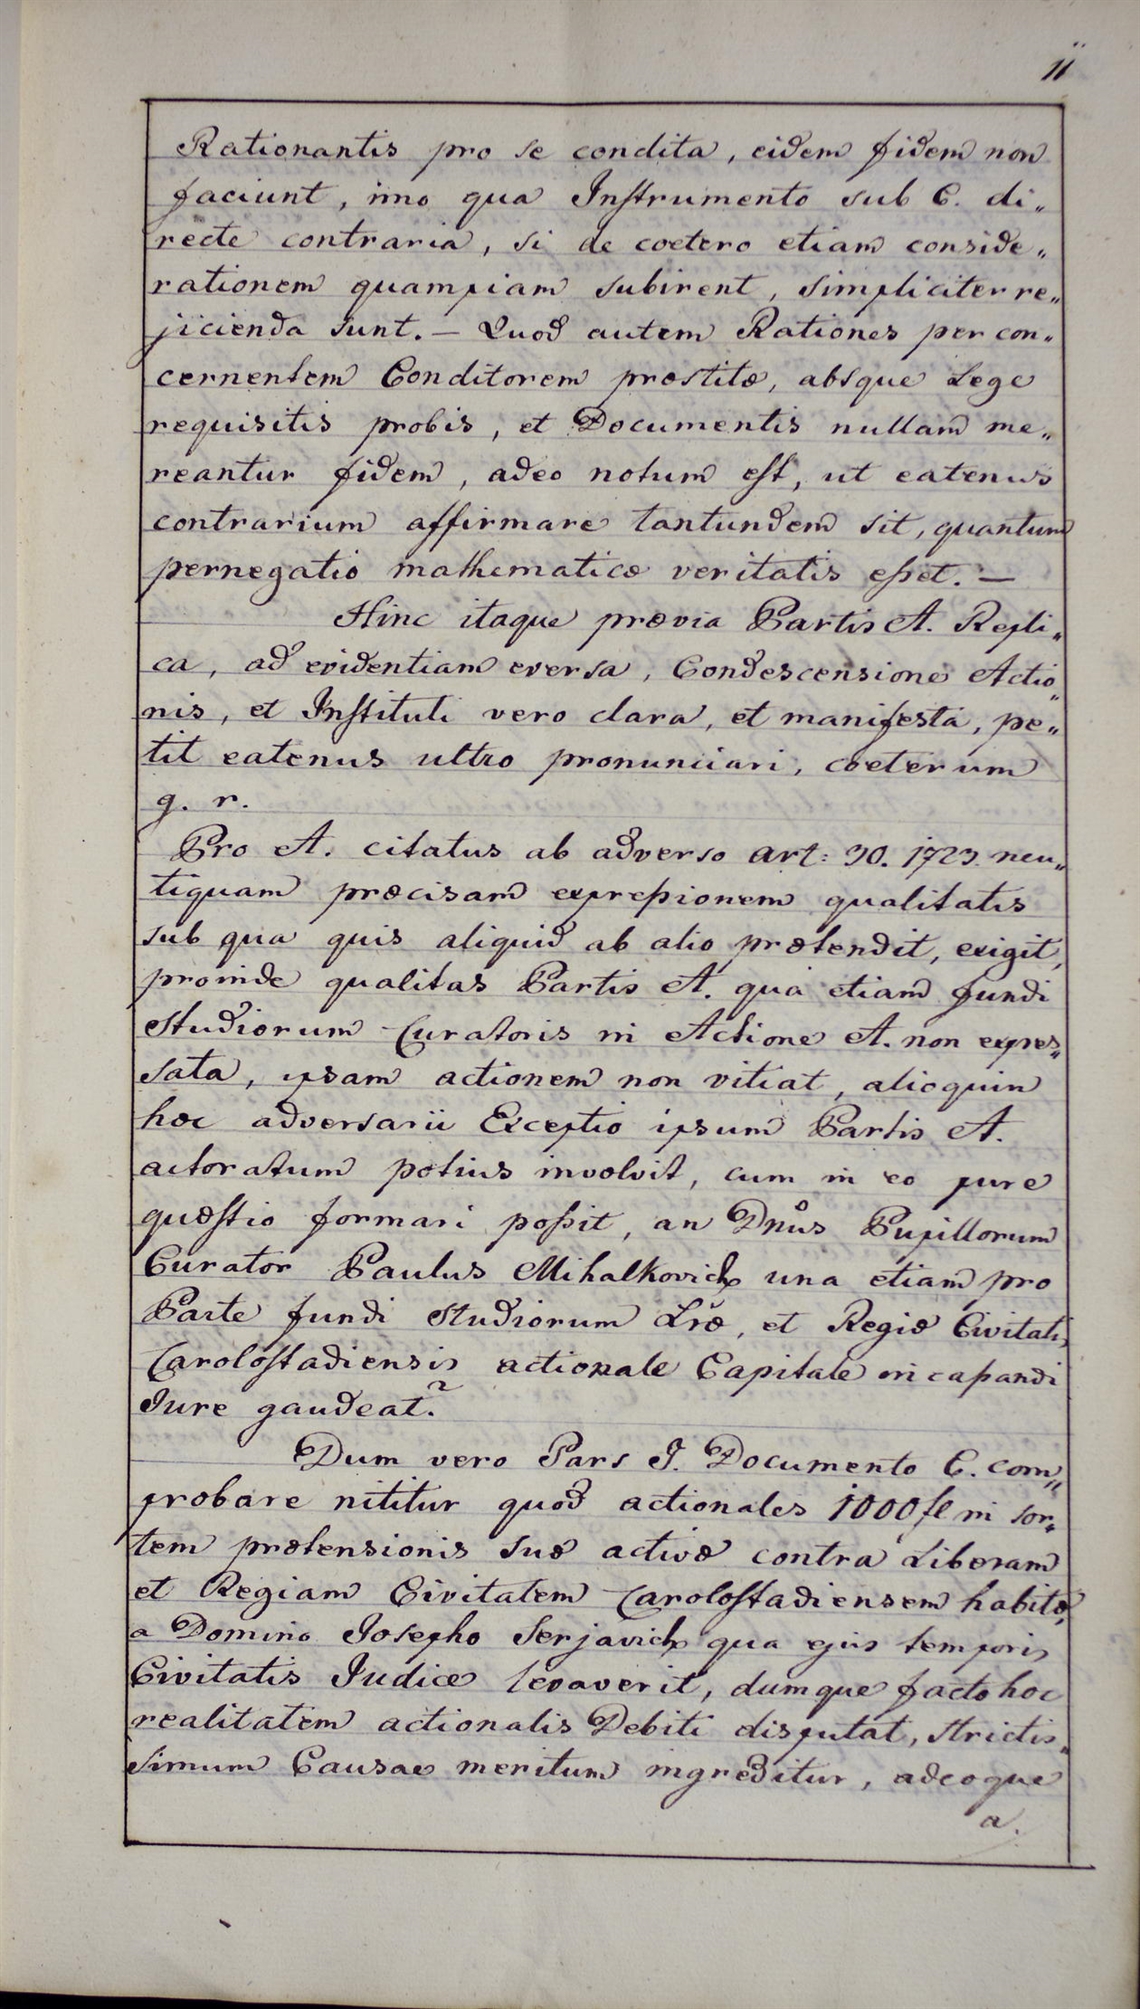 11
Rationantis pro se condita, eidem fidem non
faciunt, imo qua Instrumento sub C. di„
recte contraria, si de coetero etiam conside„
rationem quampiam subirent, simpliciter re„
jicienda sunt. — Quod autem Rationes per con„
cernentem Conditorem præstitæ, absque Lege
requisitis probis, et Documentis nullam me„
reantur fidem, adeo notum est, ut eatenus
contrarium affirmare tantundem sit, quantum
pernegatio mathematicæ veritatis esset. —
Hinc itaque prævia Partis A. Repli„
ca, ad evidentiam eversa, Condescensione Actio„
nis, et Instituti vero clara, et manifesta, pe„
tit eatenus ultro pronunciari, coeterum
q. r.
Pro A. citatus ab adverso art: 30. 1723. neu„
tiquam præcisam expressionem qualitatis
sub qua quis aliquid ab alio prætendit, exigit,
proinde qualitas Partis A. qua etiam fundi
Studiorum Curatoris in Actione A. non expres„
sata, ipsam actionem non vitiat, alioquin
hæc adversarii Exceptio ipsum Partis A.
actoratum potius involvit, cum in eo jure
quæstio formari possit, an Dnus Pupillorum
Curator Paulus Mihalkovich una etiam pro
Parte fundi Studiorum Lræ, et Regiæ Civitatis
Carolostadiensis actionale Capitale incassandi
Jure gaudeat?
Dum vero Pars I. Documento C. com„
probare nititur quod actionales 1000 fl in sor„
tem prætensionis suæ activæ contra Liberam
et Regiam Civitatem Carolostadiensem habitæ,
a Domino Josepho Serjavich qua ejus temporis
Civitatis Judice levaverit, dumque facto hoc
realitatem actionalis Debiti disputat, strictis„
simum Causae meritum ingreditur, adeoque
a.